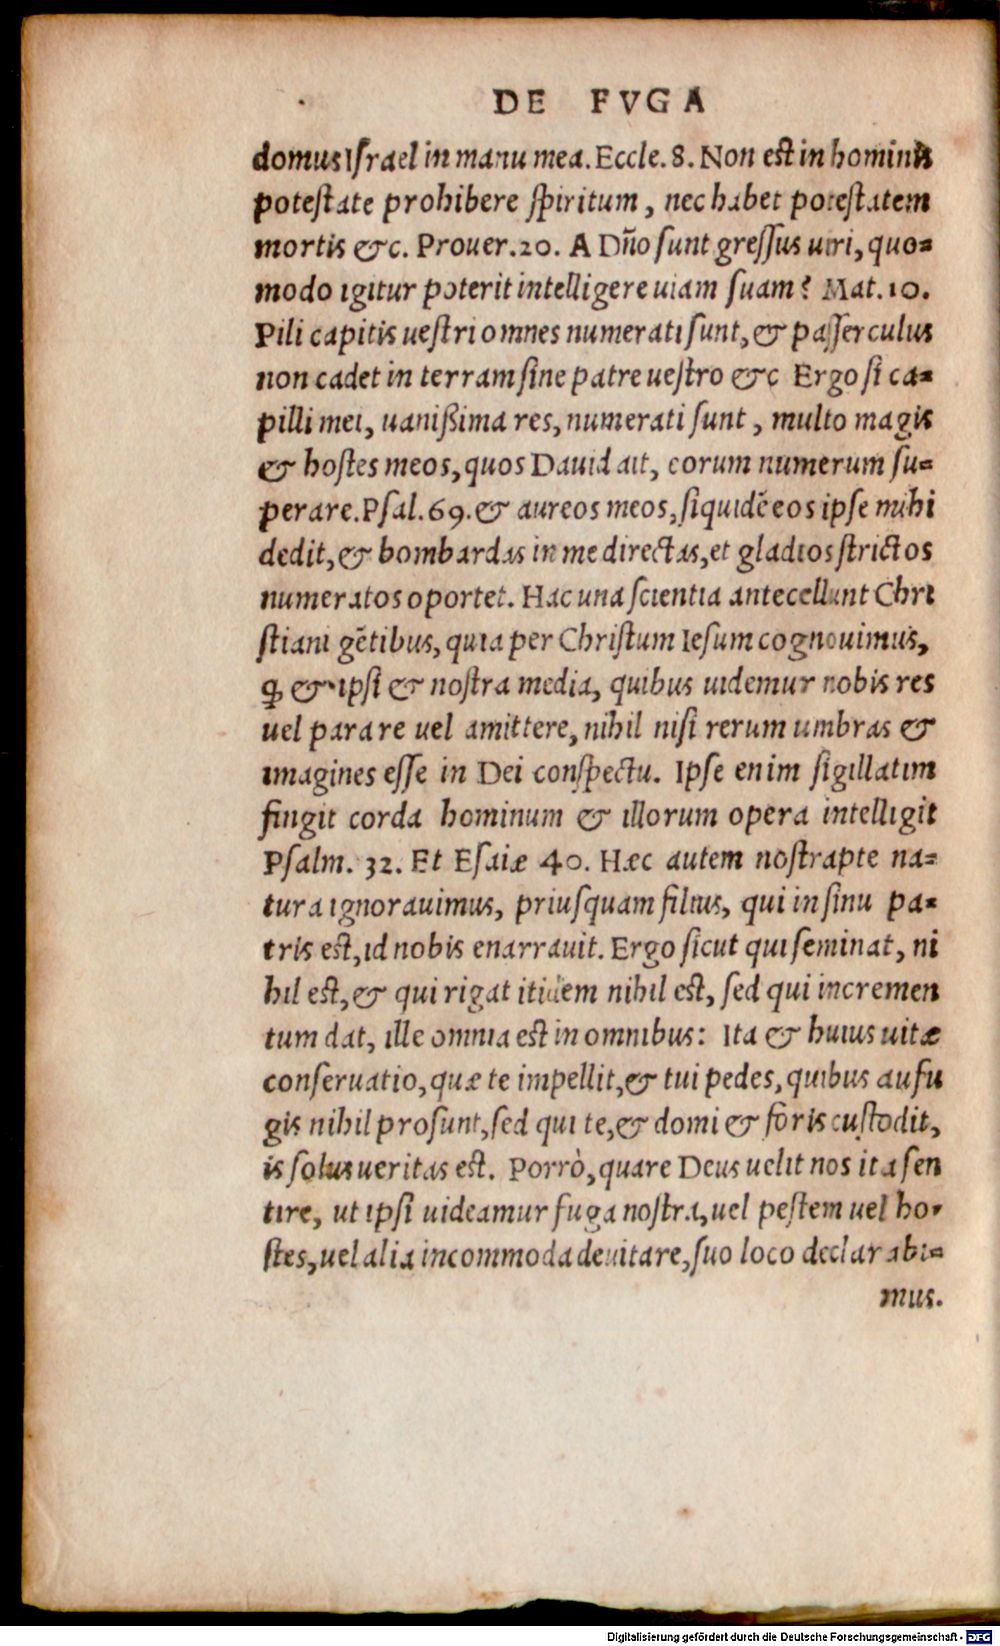 DE FVGA
domus Israel in manu mea. Eccle. 8. Non est in hominis
potestate prohibere spiritum, nec habet potestatem
mortis &c. Prouer. 20. A Dño sunt gressus uiri, quo-
modo igitur poterit intelligere uiam suam? Mat. 10.
Pili capitis uestri omnes numerati sunt, & passerculus
non cadet in terram sine patre uestro &c Ergo si ca-
pilli mei, uanißima res, numerati sunt, multo magis
& hostes meos, quos Dauid ait, eorum numerum su-
perare. Psal. 69. & aureos meos, siquidē eos ipse mihi
dedit, & bombardas in me directas, et gladios strictos
numeratos oportet. Hac una scientia antecellunt Chri
stiani gētibus, quia per Christum Iesum cognouimus,
ꝙ & ipsi & nostra media, quibus uidemur nobis res
uel parare uel amittere, nihil nisi rerum umbras &
imagines esse in Dei conspectu. Ipse enim sigillatim
fingit corda hominum & illorum opera intelligit
Psalm. 32. Et Esaiæ 40. Hæc autem nostrapte na-
tura ignorauimus, priusquam filius, qui in sinu pa-
tris est, id nobis enarrauit. Ergo sicut qui seminat, ni
hil est, & qui rigat itidem nihil est, sed qui incremen
tum dat, ille omnia est in omnibus: Ita & huius uitæ
conseruatio, quæ te impellit, & tui pedes, quibus aufu
gis nihil prosunt, sed qui te, & domi & foris custodit,
is solus ueritas est. Porrò, quare Deus uelit nos ita sen
tire, ut ipsi uideamur fuga nostra, uel pestem uel ho-
stes, uel alia incommoda deuitare, suo loco declarabi-
mus.
Digitalisierung gefördert durch die Deutsche Forschungsgemeinschaft - DFG